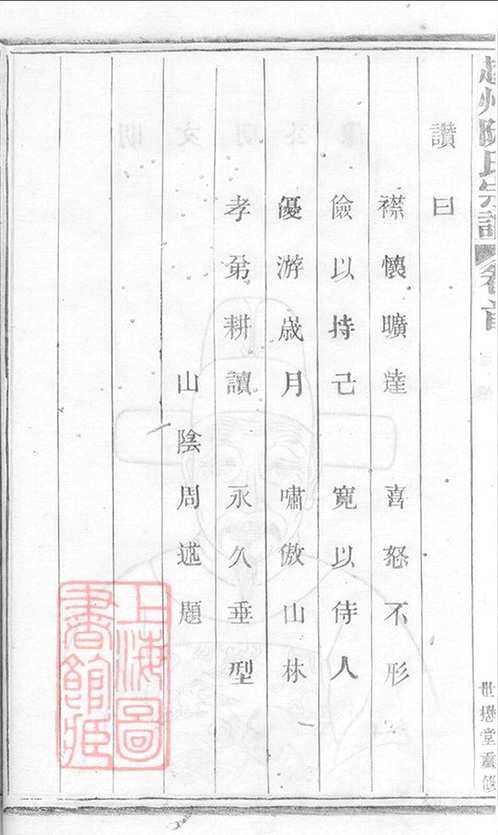 趙州陳氏宗譜 卷首
讚曰
襟懷曠達 喜怒不形
儉以持己 寬以待人
優游歲月 嘯傲山林
孝弟耕讀 永久垂型
山陰周述題
世懋堂重修
上海圖書館藏